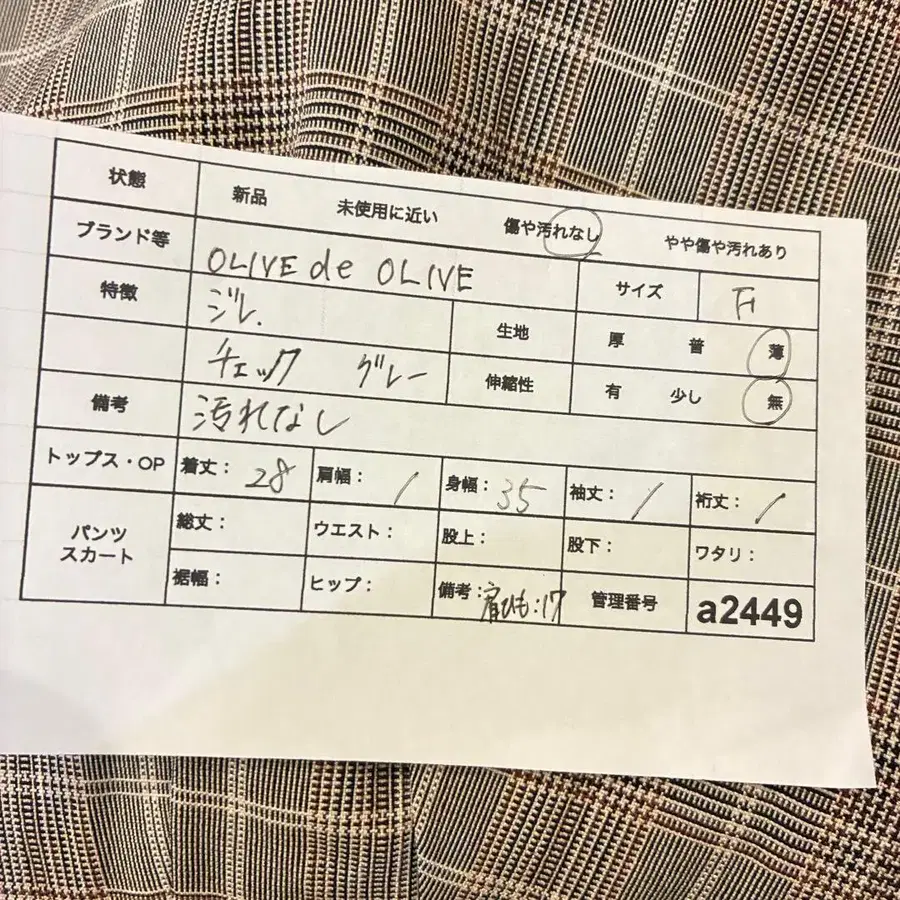 状態 新品 未使用に近い 傷や汚れなし やや傷や汚れあり
ブランド等 OLIVE de OLIVE サイズ F
特徴 ジレ. 生地 厚 普 薄
チェック グレー 伸縮性 有 少し 無
備考 汚れなし
トップス・OP 着丈: 28 肩幅: / 身幅: 35 袖丈: / 裄丈: /
パンツ スカート 総丈: ウエスト: 股上: 股下: ワタリ:
裾幅: ヒップ: 備考: 肩ひも:17 管理番号 a2449